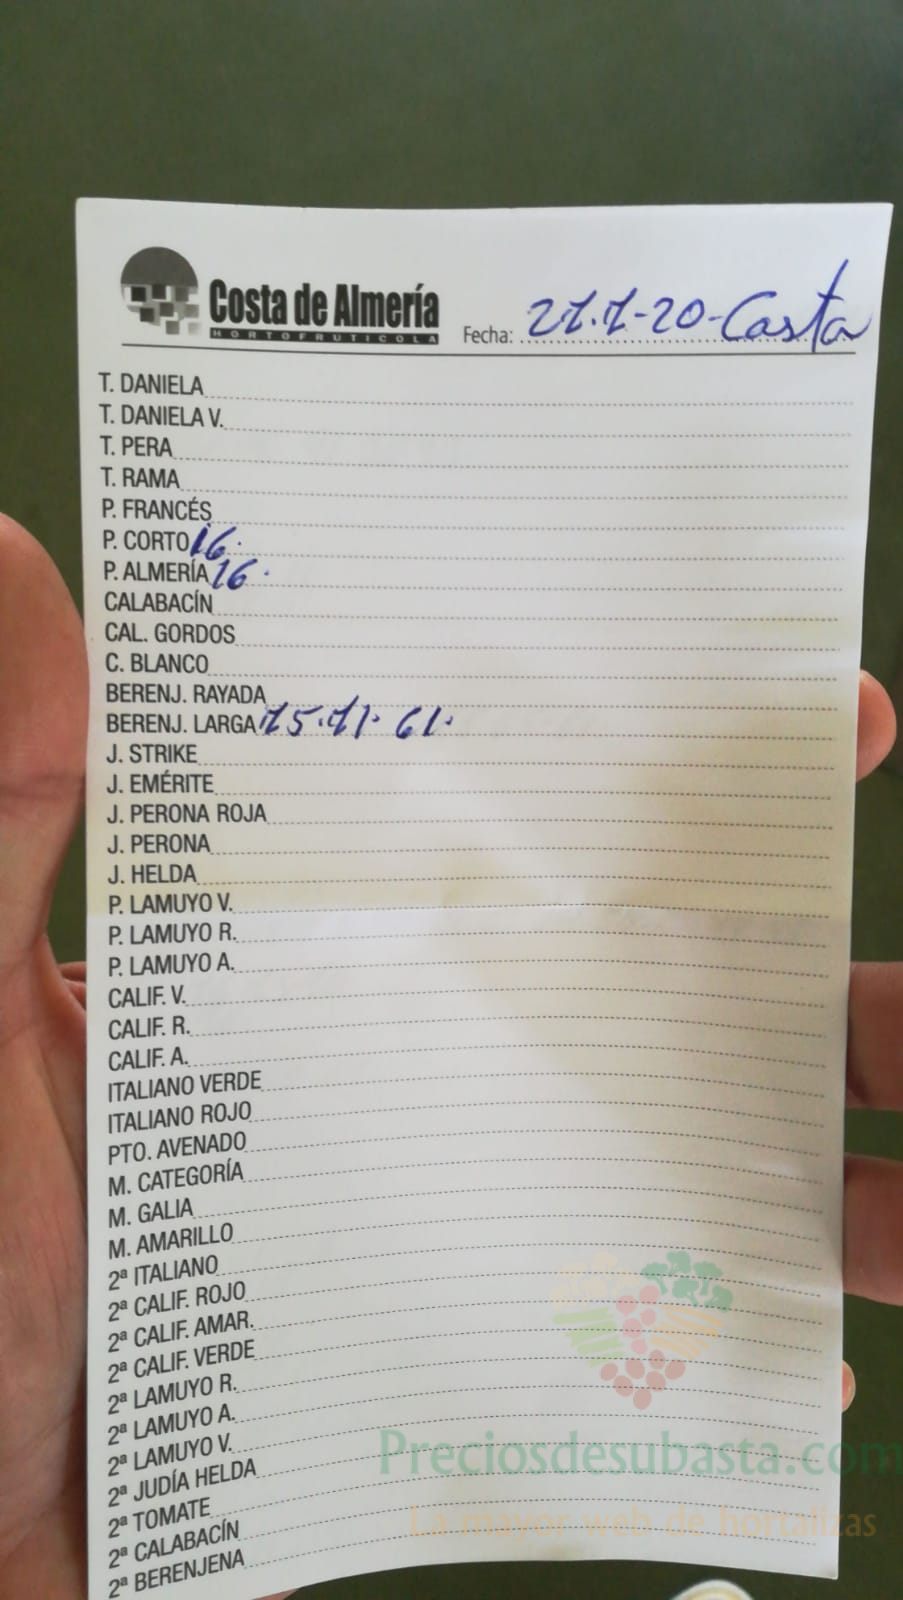 Costa de Almería
HORTOFRUTICOLA
Fecha: 27.7-20-Costa
T. DANIELA
T. DANIELA V.
T. PERA
T. RAMA
P. FRANCÉS
P. CORTO 16.
P. ALMERÍA 16.
CALABACÍN
CAL. GORDOS
C. BLANCO
BERENJ. RAYADA
BERENJ. LARGA 75.71. 61.
J. STRIKE
J. EMÉRITE
J. PERONA ROJA
J. PERONA
J. HELDA
P. LAMUYO V.
P. LAMUYO R.
P. LAMUYO A.
CALIF. V.
CALIF. R.
CALIF. A.
ITALIANO VERDE
ITALIANO ROJO
PTO. AVENADO
M. CATEGORÍA
M. GALIA
M. AMARILLO
2ª ITALIANO
2ª CALIF. ROJO
2ª CALIF. AMAR.
2ª CALIF. VERDE
2ª LAMUYO R.
2ª LAMUYO A.
2ª LAMUYO V.
2ª JUDÍA HELDA
2ª TOMATE
2ª CALABACÍN
2ª BERENJENA
Preciosdesubasta.com
La mayor web de hortalizas